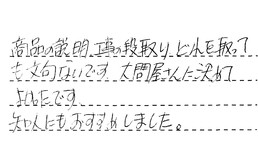 商品の説明、工事の段取り、どれを取って
も文句ないです。大問屋さんに決めて
よかったです。
知人にもおすすめしました。